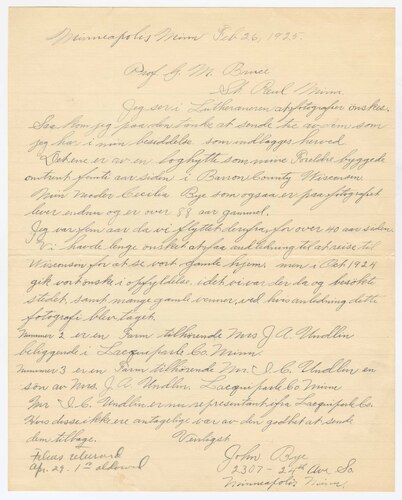 Minneapolis Minn Feb 26, 1925.
Prof. G. M. Bruce
St Paul Minn
Jeg ser i Lutheraneren at fotografier önskes.
Saa kom jeg paa den tanke at sende tre av dem som
jeg har i min besiddelse som indlægges herved
Det ene er av en loghytte som mine Foreldre byggede
omtrent femti aar siden i Barron County Wisconsin
Min Moder Cecilia Bye som ogsaa er paa fotografiet
lever endnu og er over 88 aar gammel.
Jeg var fem aar da vi flyttet derifra, for over 40 aar siden.
Vi havde lenge önsket at faa anledning til at reise til
Wisconsin for at se vort gamle hjem, men i Oct 1924
gik vort önske i opfyldelse, idet vi var der da og besökte
stedet, samt mange gamle venner, ved hvis anledning dette
fotografi blev taget.
Nummer 2 er en Farm tilhörende Mrs J. A. Undlin
beliggende i Lacquiparle Co. Minn.
Nummer 3 er en Farm tilhörende Mr. I. C. Undlin en
son av Mrs. J. A. Undlin, Lacquiparle Co Minn
Mr I. C. Undlin er nu representant ifra Lacquiparle Co.
Hvis disse ikke er antagelige var av den godhet at sende
dem tilbage. Venligst
John Bye
2307 - 24th Ave. So.
Minneapolis Minn.
Apr. 29. 1st